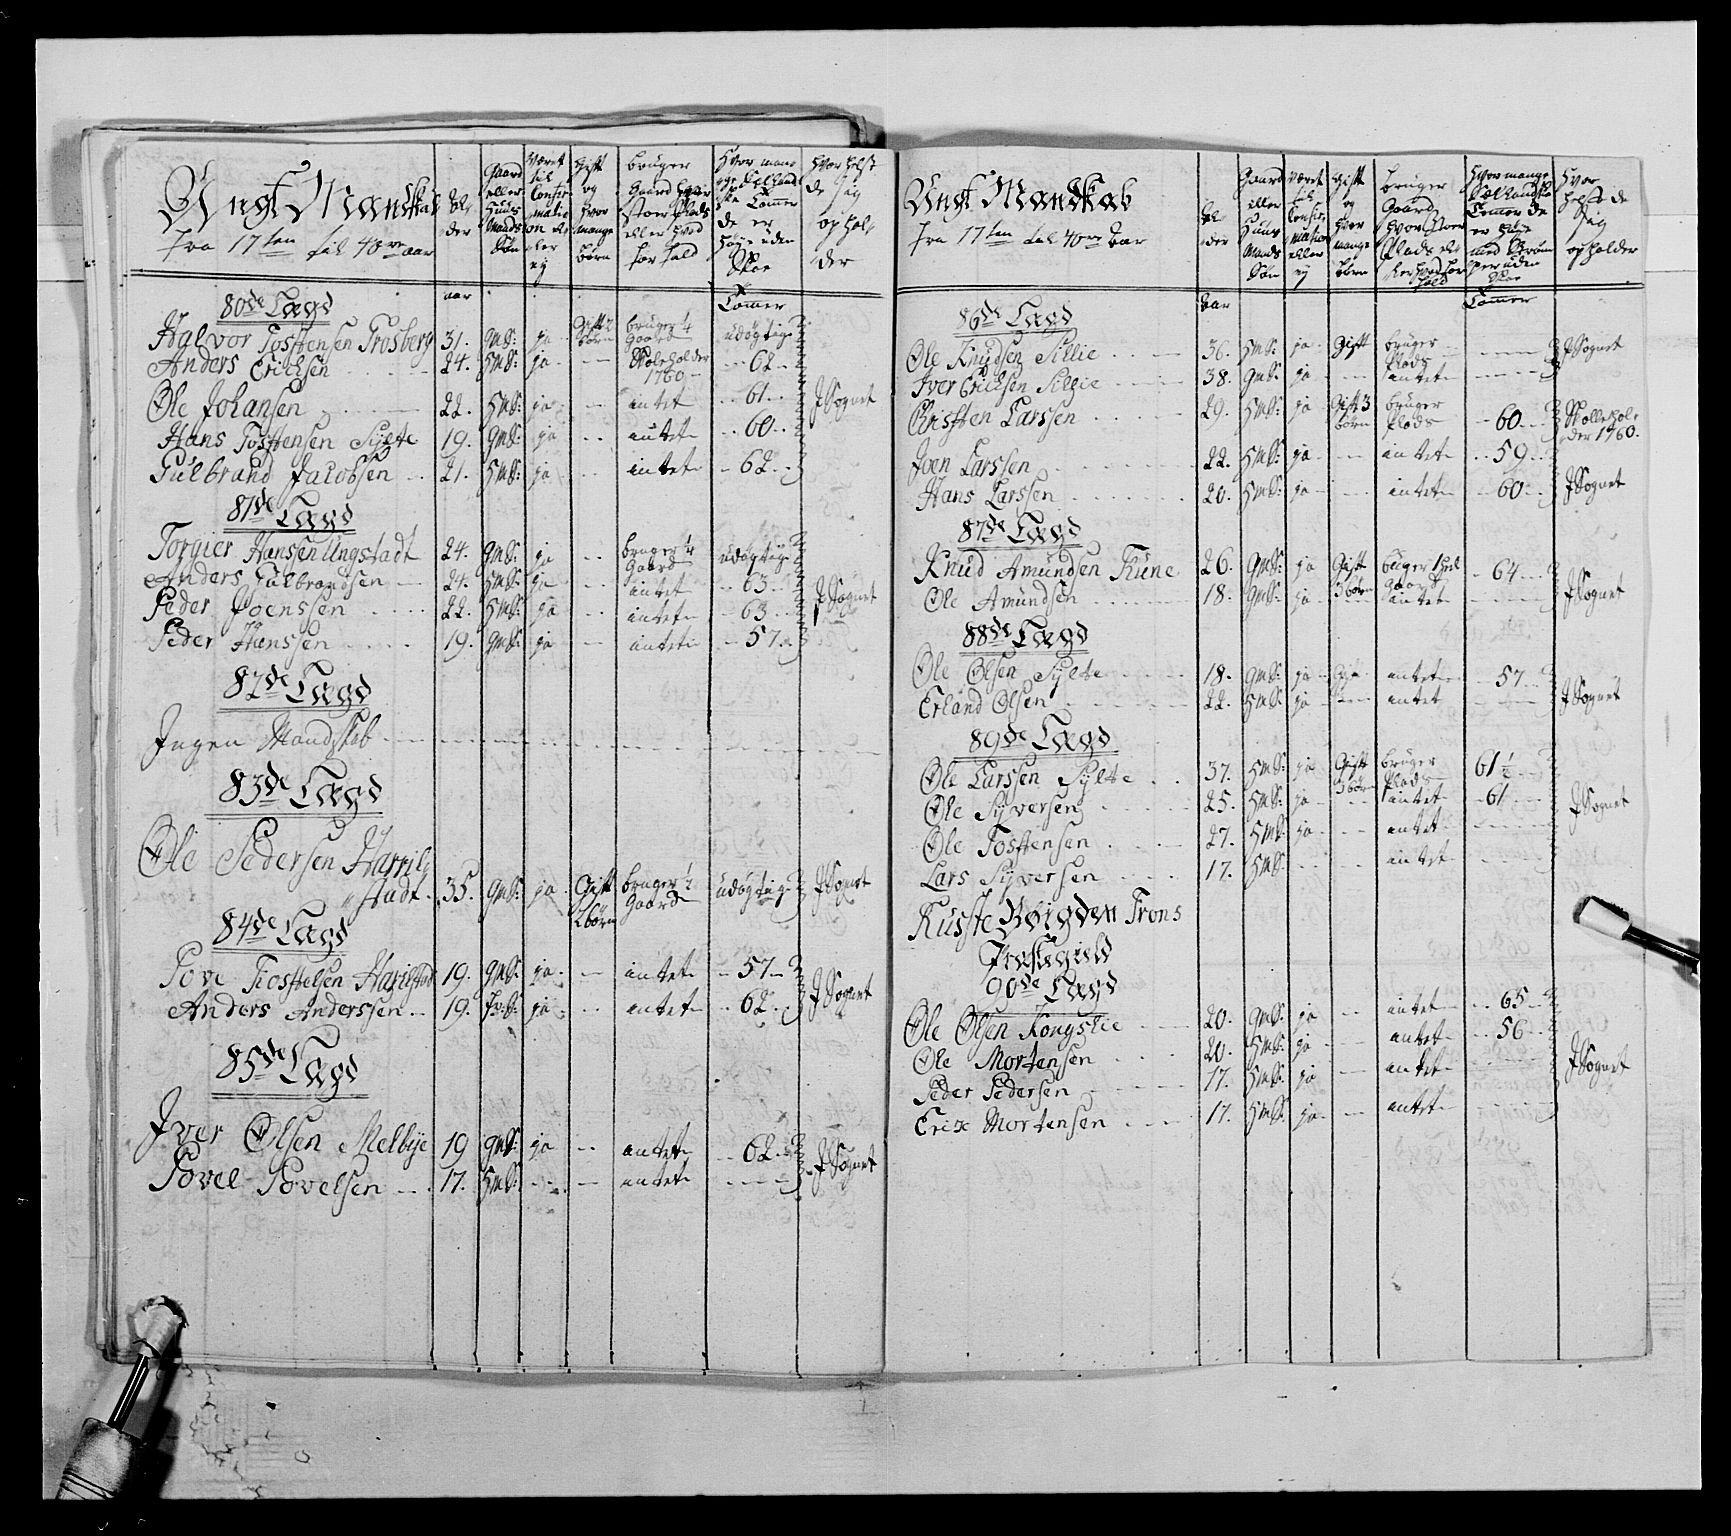 Ungt Mandskab
fra 17ten til 40ve aar
Al,
der
Gaard
eller
Huus
Mands
Søn
Været
til
Confir
matio
on el
ler
ey
Gift
og
hvor
mange
børn
bruger
Gaard hvor
stoer Plads
eller hvad
for hold
Hvor man
ge Sælland
ske Tommer
de er
høye uden
Skoe
hvor helst
de sig
ophol,
der
aar
Tommer
80de Lægd
Halvor Tostensen Trosberg 31. GMS: ja Gift 2 børn bruger 1/4 Gaard udøgtig
Anders Erichsen 24. HMS: ja -- 1760 -- 62
Ole Johansen 22. HMS: ja -- intet -- 61 J Sognet
Hans Tostensen Sylte 19. GMS: ja -- intet -- 60
Gulbrand Jacobsen 21. HMS: ja -- intet -- 62
81de Lægd
Torgier Hanssen Ungstadt 24. GMS: ja -- bruger 1/4 Gaard udøgtig
Anders Gulbrandsen 24. HMS: ja -- intet -- 63 J Sognet
Peder Joenssen 22. HMS: ja -- intet -- 63
Peder Hanssen 19. GMS: ja -- intet -- 57
82de Lægd
Ingen Mandskab
83de Lægd
Ole Pedersen Harril,
stadt 35. GMS: ja Gift 2 børn bruger 1/2 Gaard udøgtig J Sognet
84de Lægd
Tove Tostelsen Harilstad 19. GMS: ja -- intet -- 57 J Sognet
Anders Anderssen 19. ja -- intet -- 62
85de Lægd
Iver Olsen Melbye 19 GMS: ja -- intet -- 62 J Sognet
Povel Povelsen 17. HMS: -- intet
Ungt Mandskab
fra 17ten til 40ve aar
Al,
der
Gaard
eller
Huus
Mands
Søn
Været
til
Confir,
mation
eller
ey
Gift
og
hvor
mange
børn
bruger
Gaard
hvor stoer
Plads el,
ler hvad for
hold
Hvor mange
Sællandske
Tommer de
er høye
uden
Skoe
Hvor
helst de
Sig
opholder
aar
Tommer
86de Lægd
Ole Knudsen Sillie 36. HMS: ja Gift bruger Plads J Sognet
Iver Erichsen Sillie 38. GMS: ja -- intet
Christen Larssen 29. HMS: ja Gift 3 børn bruger Plads 60 1760.
Joen Larssen 22. HMS: ja -- intet 59
Hans Larssen 20. HMS: ja -- intet 60 J Sognet
87de Lægd
Knud Amundsen Tune 26. GMS: ja Gift 3 børn bruger Gaard 64 J Sognet
Ole Amundsen 18. GMS: ja -- intet
88de Lægd
Ole Olsen Sylte 18. GMS: ja intet 57 J Sognet
Erland Olsen 22. HMS: ja -- intet
89de Lægd
Ole Larssen Sylte 37. HMS: ja Gift 3 børn bruger Plads 61 1/2
Ole Syversen 25. HMS: ja -- intet 61 J Sognet
Ole Tostensen 27. HMS: ja -- intet
Lars Syversen 17. HMS: -- intet
Bøigden Frons
Præstegield
90de Lægd
Ole Olsen Kongslie 20. GMS: ja -- intet 65
Ole Mortensen 20. HMS: ja -- intet 56 J Sognet
Peder Pedersen 17. HMS: ja -- intet
Erix Mortensen 17. HMS: ja -- intet